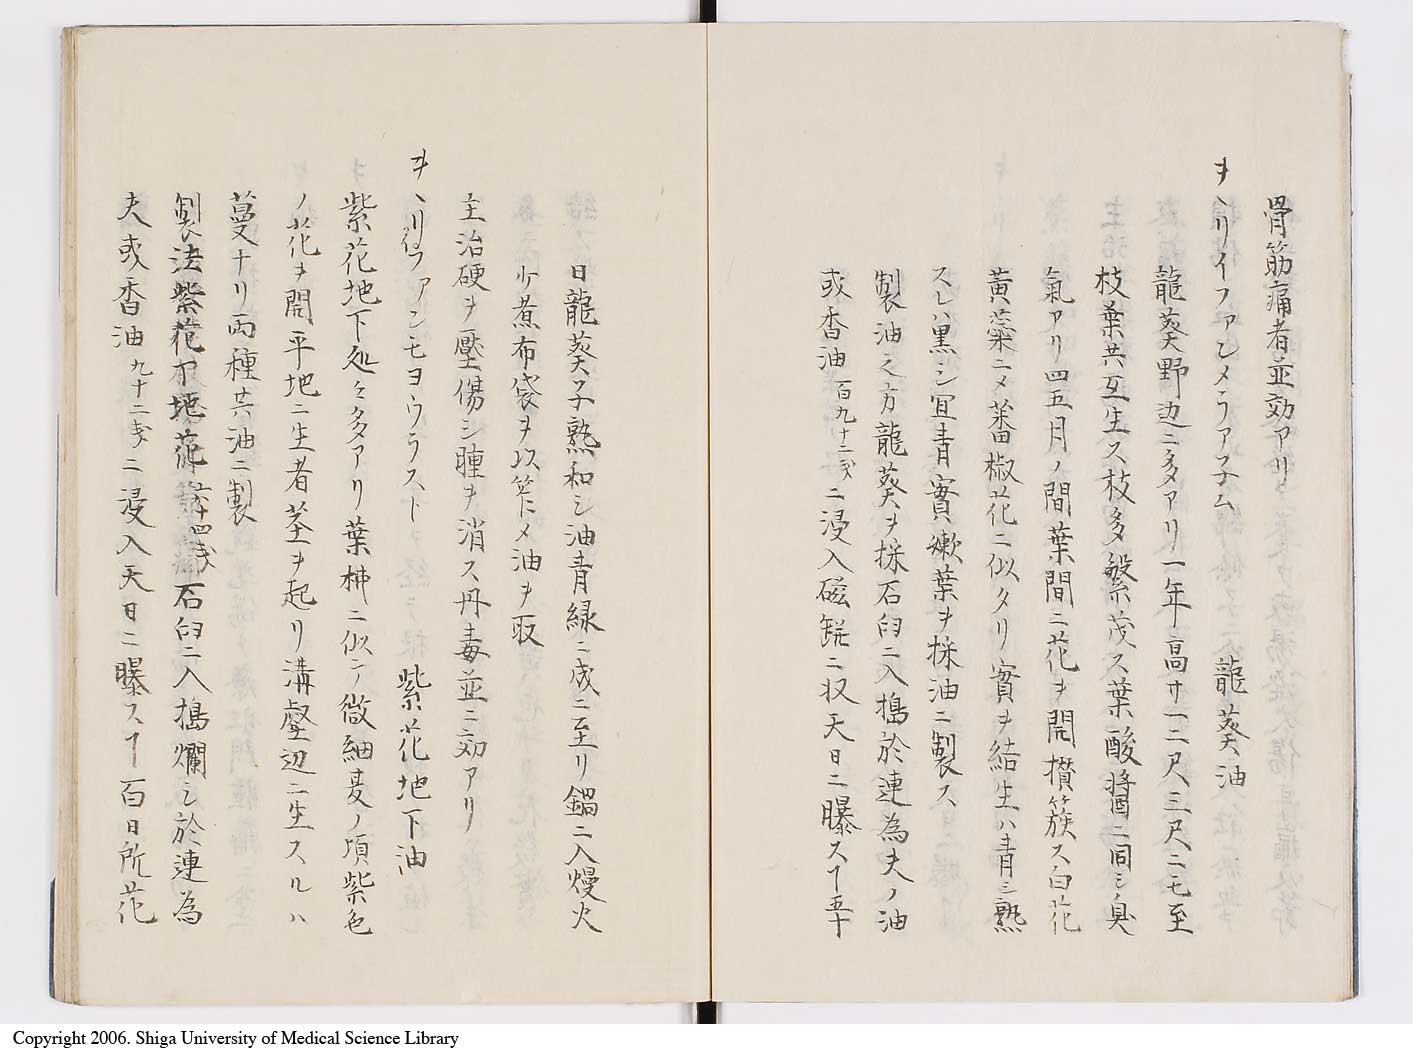 骨筋痛者並効アリ
ヲヽリイフアンメラアテム 龍葵油
龍葵野辺ニ多アリ一年高サ一二尺三尺ニモ至
枝葉共互生ス枝多繁茂ス葉酸醤ニ同シノ臭
氣アリ四五月ノ間葉間ニ花ヲ開攅簇ス白花
黄蘂ニメ蕃椒花ニ似タリ實ヲ結生ハ青シ熟
スレハ黒シ宜青實嫩葉ヲ採油ニ製ス
製油之方龍葵ヲ採石臼ニ入搗於連為夫ノ油
或香油百九十二戔ニ浸入磁缾ニ収天日ニ曝スヿ五十
日龍葵子熟和シ油青緑ニ成ニ至リ鍋ニ入熳火
少煮布袋ヲ以笮メ油ヲ取
主治硬ヲ壓傷シ腫ヲ消ス丹毒並ニ効アリ
ヲヽリイフアンモヨウラスト 紫花地下油
紫花地下処々多アリ葉柹ニ似シノ微細夌ノ頃紫色
ノ花ヲ開平地ニ生者茎ヲ起リ溝壑辺ニ生スルハ
蔓ナリ両種共油ニ製
製法紫花下地花 四戔石臼ニ入搗爛シ於連為
夫或香油九十二戔ニ浸入天日ニ曝スヿ百日所花
Copyright 2006. Shiga University of Medical Science Library